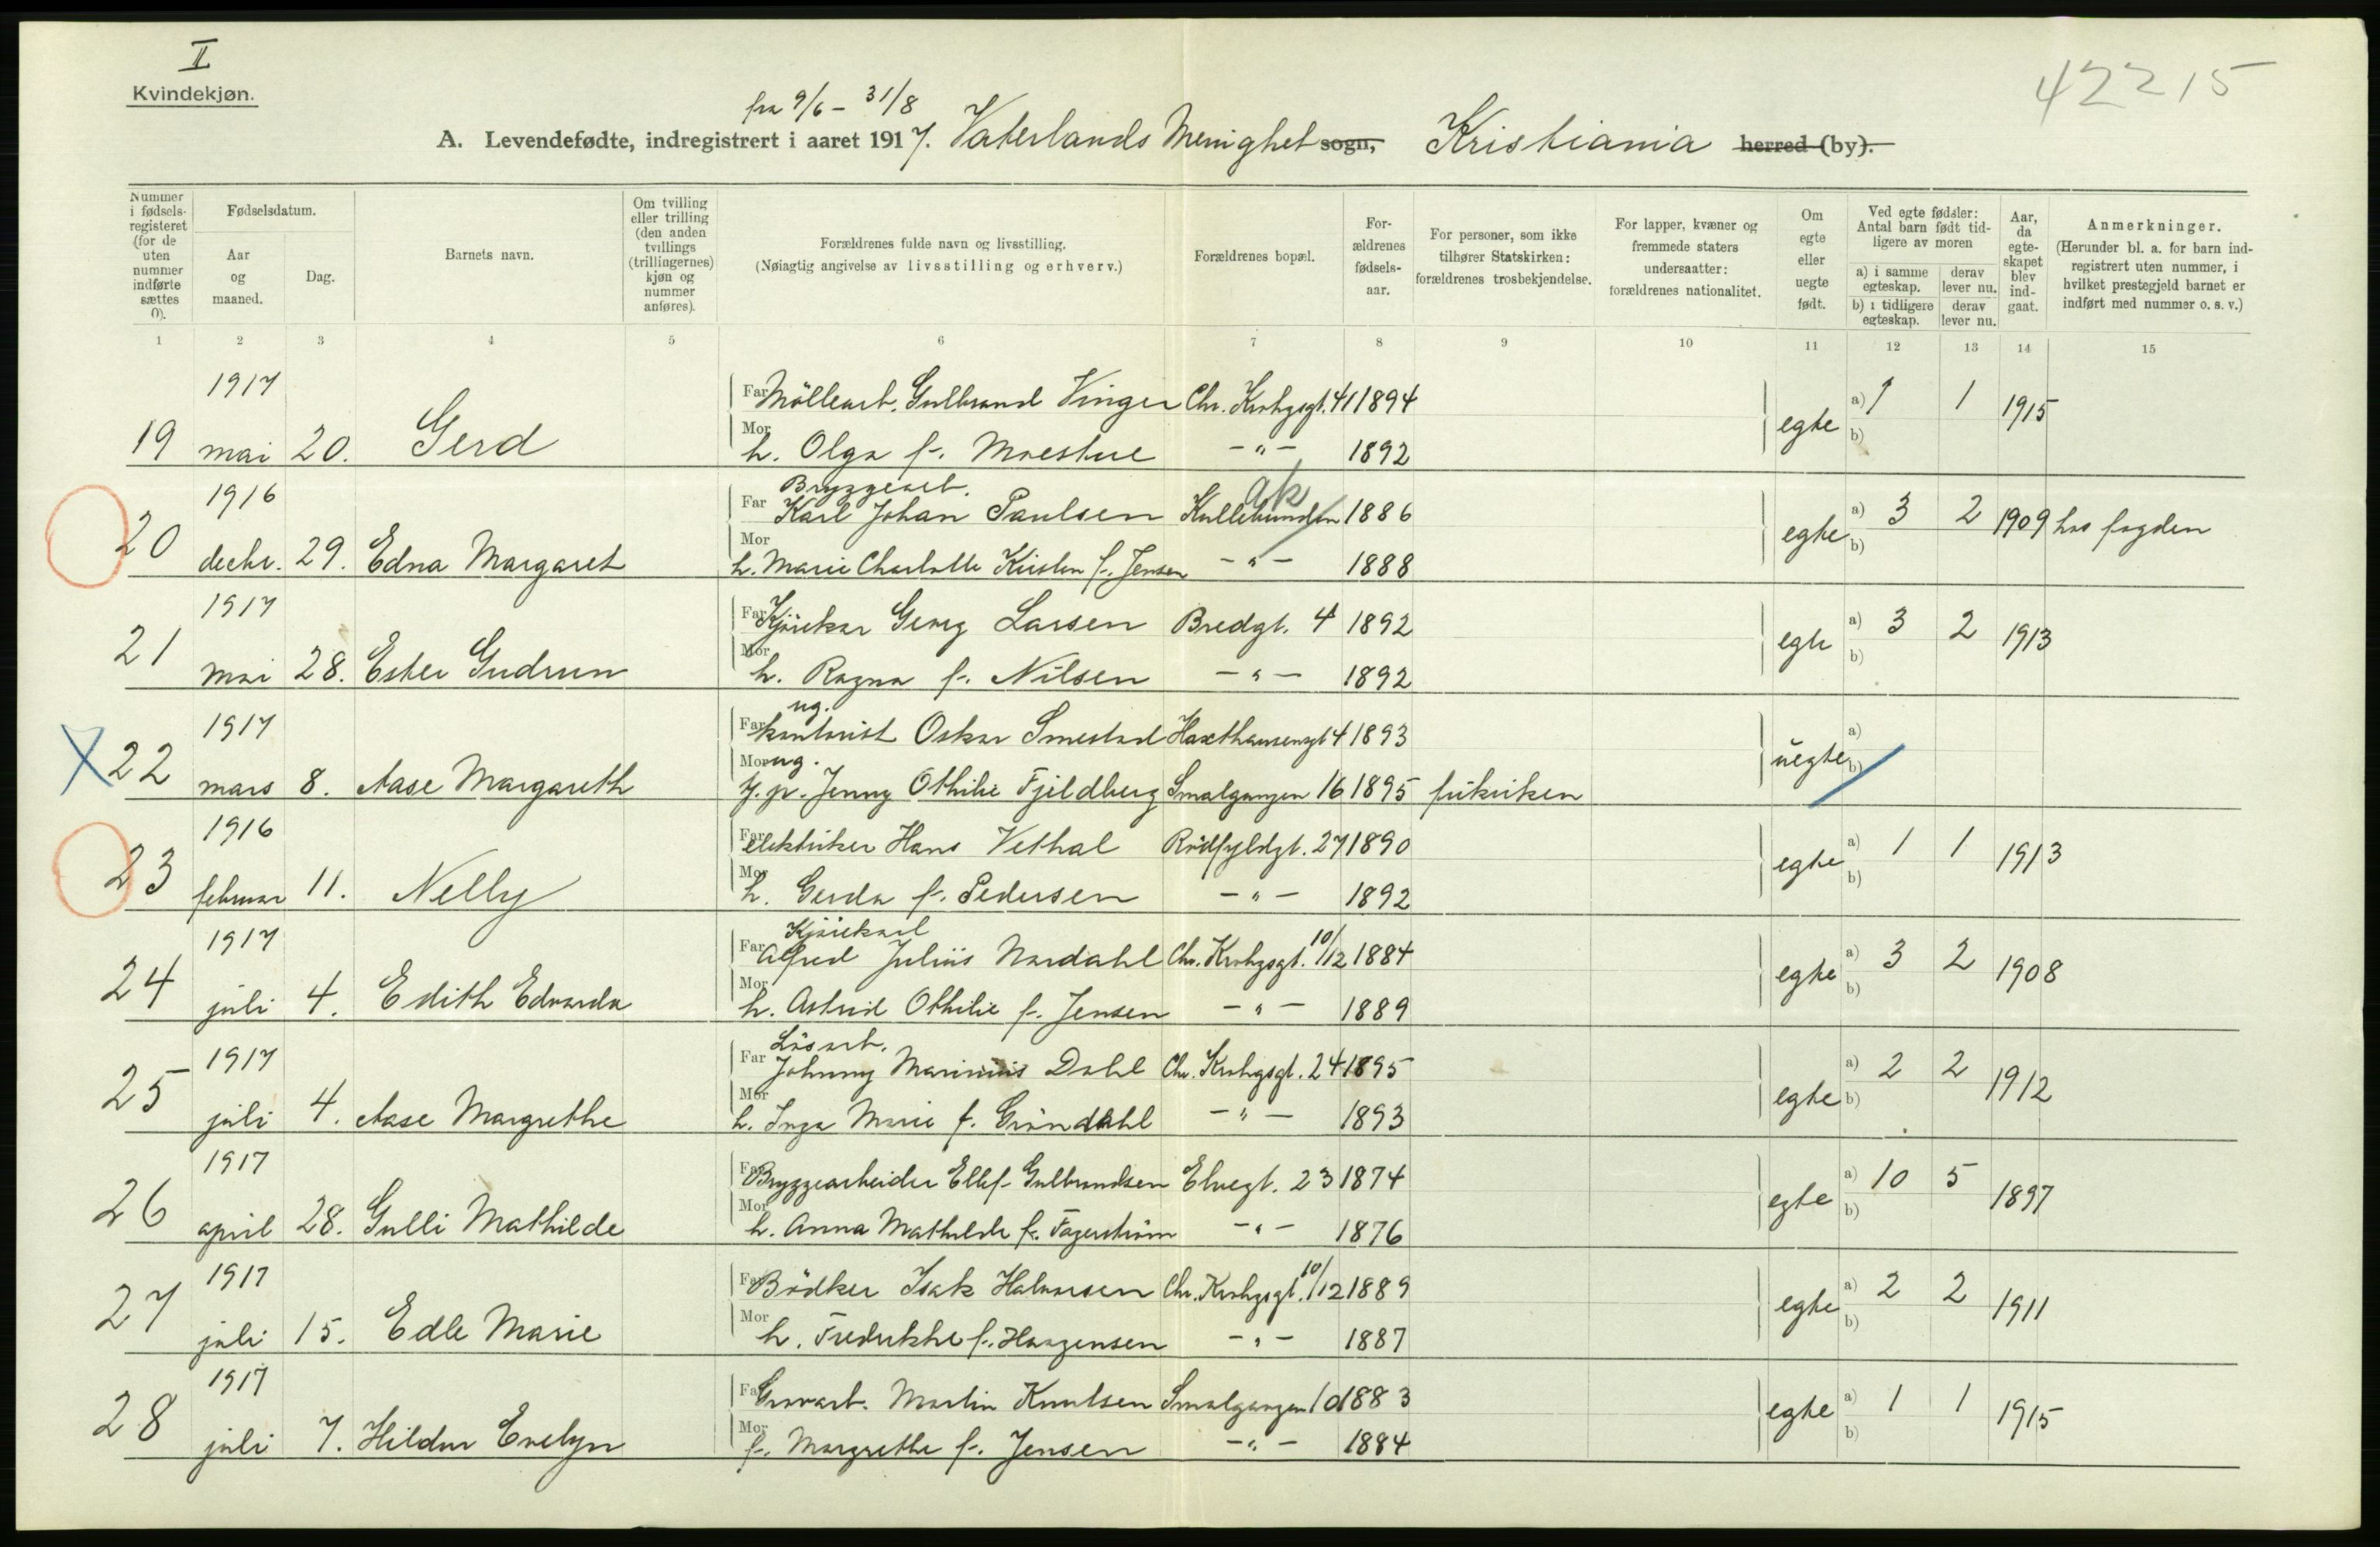 II
Kvindekjøn.
42215
fra 9/6 - 31/8
A. Levendefødte, indregistrert i aaret 1917. Vaterlands Menighet sogn, Kristiania herred (by).
Nummer i fødselsregisteret (for de uten nummer indførte sættes 0).
Fødselsdatum.
Aar og maaned.
Dag.
Barnets navn.
Om tvilling eller trilling (den anden tvillings (trillingernes) kjøn og nummer anføres).
Forældrenes fulde navn og livsstilling.
(Nøiagtig angivelse av livsstilling og erhverv.)
Forældrenes bopæl.
Forældrenes fødselsaar.
For personer, som ikke tilhører Statskirken: forældrenes trosbekjendelse.
For lapper, kvæner og fremmede staters undersaatter: forældrenes nationalitet.
Om egte eller uegte født.
Ved egte fødsler: Antal barn født tidligere av moren
a) i samme egteskap. derav lever nu.
b) i tidligere egteskap. derav lever nu.
Aar, da egteskapet blev indgaat.
Anmerkninger.
(Herunder bl. a. for barn indregistrert uten nummer, i hvilket prestegjeld barnet er indført med nummer o. s. v.)
1 2 3 4 5 6 7 8 9 10 11 12 13 14 15
1917 Far Möllearb. Gulbrand Vinger Chr. Krohgsgt. 41 1894 a) 1 1 1915
19 mai 20. Gerd Mor h. Olga f. Moestue - " - 1892 egte b)
1916 Bryggearb. ak
Far Karl Johan Paulsen Kullebunden 1886 a) 3 2 1909 hos fogden
20 decbr. 29. Edna Margaret Mor h. Marie Charlotte Kirsten f. Jensen - " - 1888 egte b)
1917 Far Kjörekar Georg Larsen Bredgt. 4 1892 a) 3 2 1913
21 mai 28. Ester Gudrun Mor h. Ragna f. Nilsen - " - 1892 egte b)
1917 ug.
Far kontorist Oskar Smestad Haxthausensgt 4 1893 a)
22 mars 8. Aase Margareth Mor ug. f. p. Jenny Othilie Fjeldberg Smalgangen 16 1895 frikirken uegte b)
1916 Far elektriker Hans Vethal Rödfyldgt. 27 1890 a) 1 1 1913
23 februar 11. Nelly Mor h. Gerda f. Pedersen - " - 1892 egte b)
1917 Kjörekarl
Far Alfred Julius Nordahl Chr. Krohgsgt. 10/12 1884 a) 3 2 1908
24 juli 4. Edith Edvarda Mor h. Astrid Othilie f. Jensen - " - 1889 egte b)
1917 Lösarb.
Far Johnny Marinius Dahl Chr. Krohgsgt. 24 1895 a) 2 2 1912
25 juli 4. Aase Margrethe Mor h. Inga Marie f. Gröndahl - " - 1893 egte b)
1917 Far Bryggearbeider Ellef Gulbrandsen Elvegt. 23 1874 a) 10 5 1897
26 april 28. Gulli Mathilde Mor h. Anna Mathilde f. Fagerström - " - 1876 egte b)
1917 Far Bödker Isak Halvorsen Chr. Krohgsgt. 10/12 1889 a) 2 2 1911
27 juli 15. Edle Marie Mor h. Fredrikke f. Haagensen - " - 1887 egte b)
1917 Far Grovarb. Martin Knutsen Smalgangen 10 1883 a) 1 1 1915
28 juli 7. Hildur Evelyn Mor f. Margrethe f. Jensen - " - 1884 egte b)